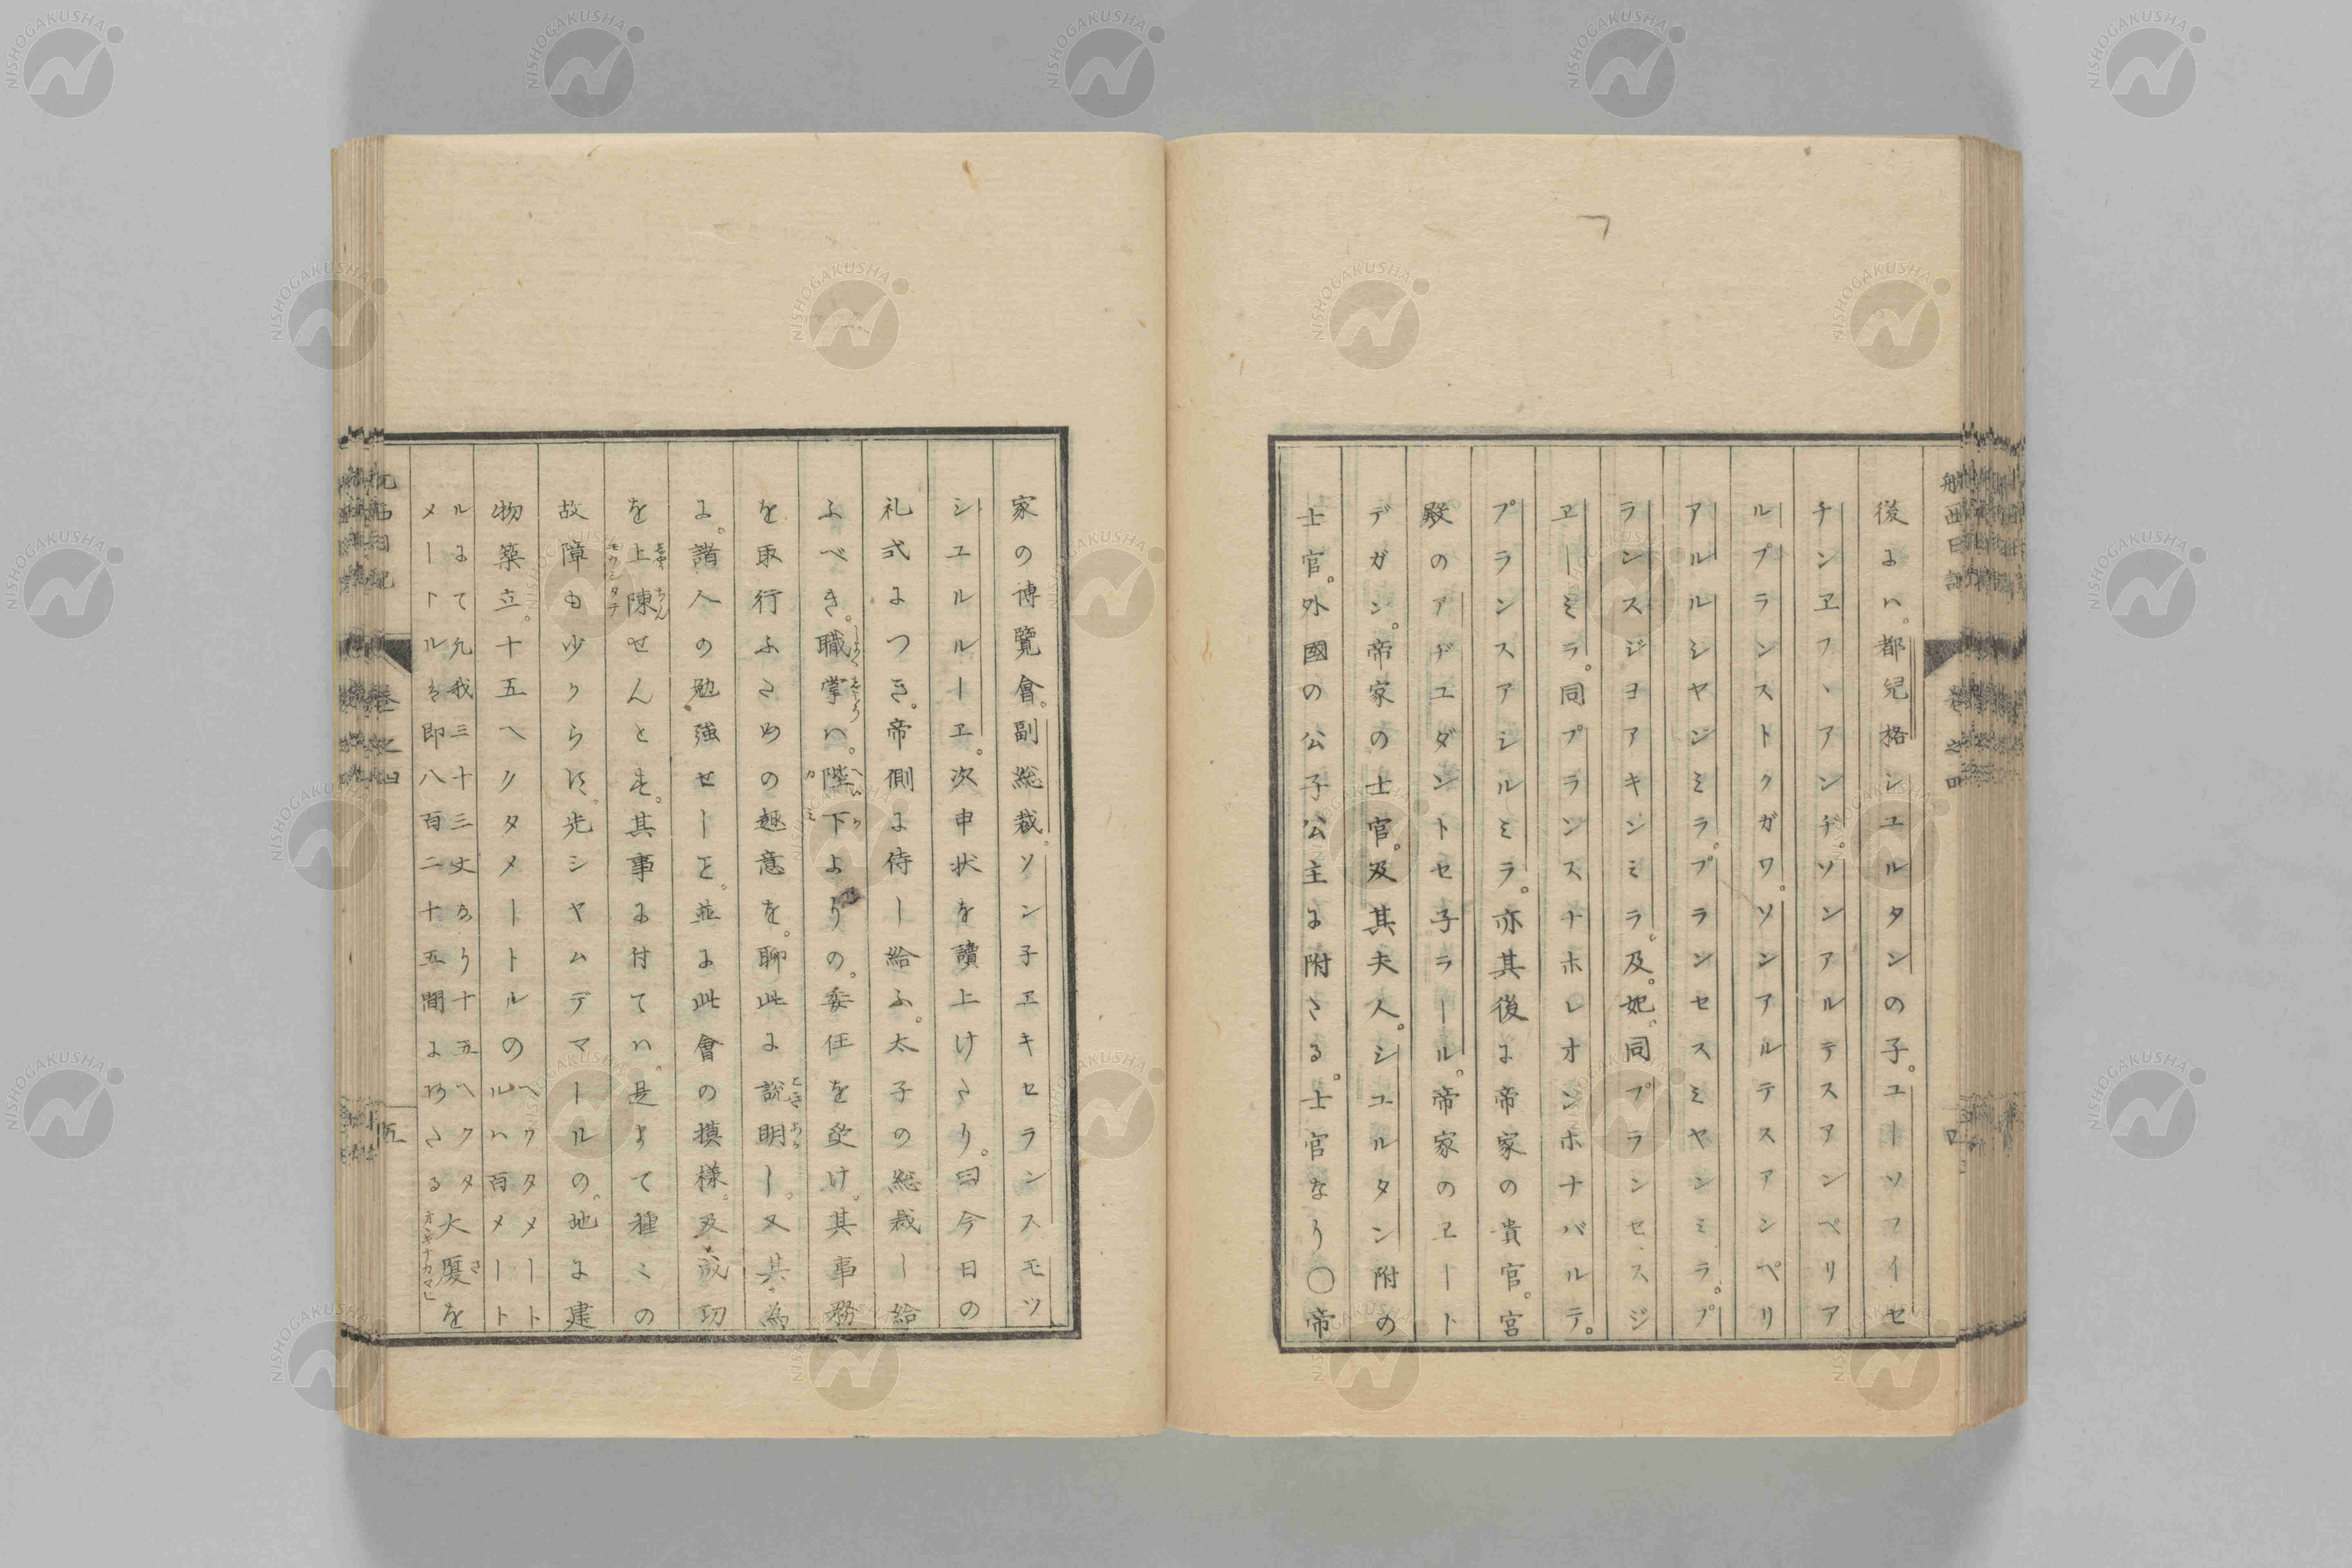 後よハ。都兒格シユルタンの子。ユーソフイセ
チンヱフヽアンヂ。ソンアルテスアンペリア
ルプランストクガワ。ソンアルテスアンペリ
アルルシヤンミラ。プランセスミヤンミラ。プ
ランスジヨアキンミラ。及。妃。同プランセスジ
ヱーミラ。同プランスナホレオンホナバルテ。
プランスアシルミラ。亦其後よ帝家の貴官。宮
殿のアヂユダントセ子ラール。帝家のヱート
デガン。帝家の士官。及其夫人。シユルタン附の
士官。外國の公子公主よ附さる。士官なり〇帝
航西日記
巻之四
四
家の博覽會。副総裁。ソン子ヱキセランスモツ
シユルルーヱ。次申状を讀上けたり。曰今日の
礼式よつき。帝側よ侍し給ふ。太子の総裁し給
ふべき。職掌ハ。陛下よりの。委任を受け。其事務
を取行ふための趣意を。聊此よ説明し。又其為
よ。諸人の勉強せしを。並よ此會の摸様。及成功
を上陳せんとす。其事よ付てハ。是よて種々の
故障も少からに。先シヤムデマールの。地よ建
物築立。十五ヘクタメートルの ヘクタメート
ルハ百メート
ルよて九我三十三丈あり十五ヘクタ
メートルを即八百二十五間よ
大厦を
航西日記
巻之四
五